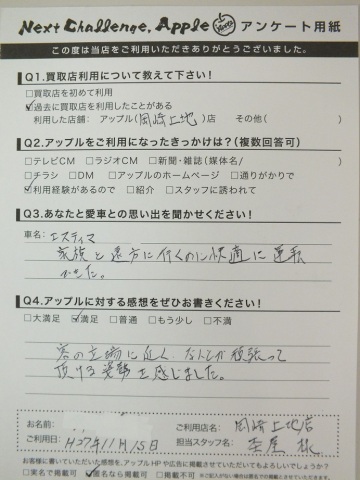 Next Challenge, Apple Hearts アンケート用紙
この度は当店をご利用いただきありがとうございました。
Q1.買取店利用について教えて下さい!
□買取店を初めて利用
☑過去に買取店を利用したことがある
利用した店舗: アップル(岡崎上地)店 その他( )
Q2.アップルをご利用になったきっかけは?(複数回答可)
□テレビCM □ラジオCM □新聞・雑誌(媒体名/ )
□チラシ □DM □アップルのホームページ □通りがかりで
☑利用経験があるので □紹介 □スタッフに誘われて
Q3.あなたと愛車との思い出を聞かせてください!
車名: エスティマ
家族と遠方に行くのに快適に運転
できた。
Q4.アップルに対する感想をぜひお書きください!
□大満足 ☑満足 □普通 □もう少し □不満
客の立場に近く、なんとか頑張って
頂ける姿勢を感じました。
お名前:
ご利用店名: 岡崎上地店
ご利用日: H27年11月15日
担当スタッフ名: 様
お客様に書いていただいた感想を、アップルHPや広告に掲載させていただいてもよろしいでしょうか?
□実名で掲載可 ☑匿名なら掲載可 □掲載不可 ※ご記入がない場合は匿名での掲載とさせていただきます。